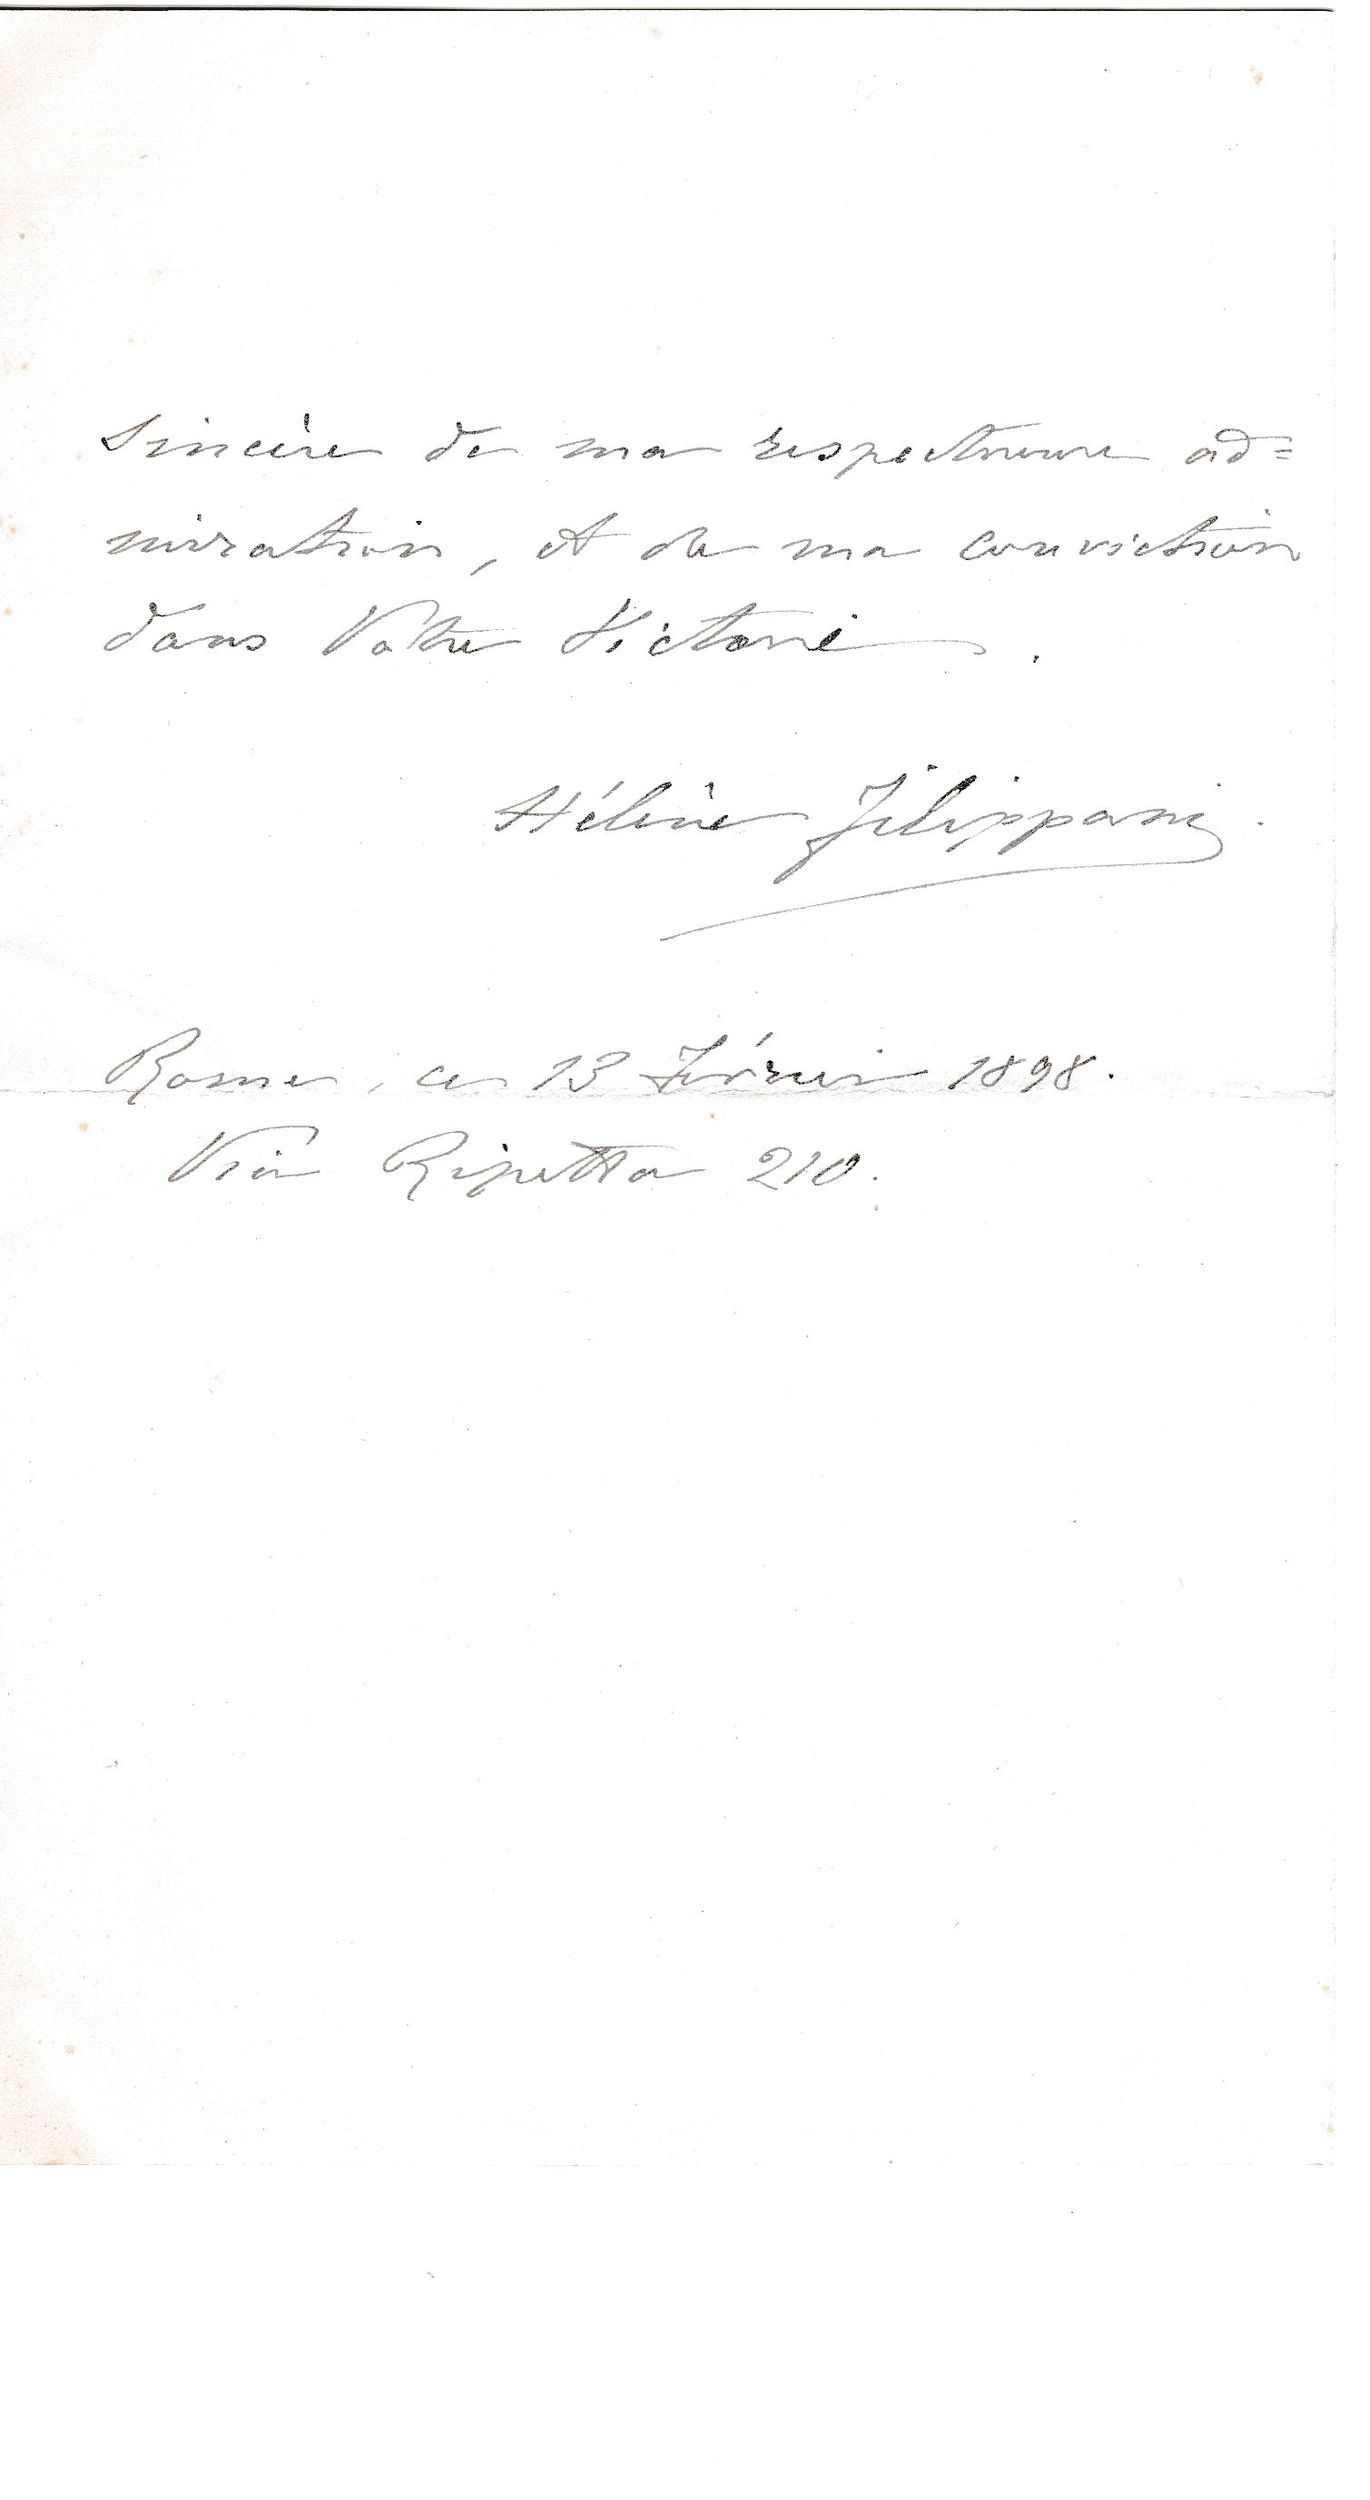 sincère de ma respectueuse ad=
miration, et de ma conviction
dans Votre Victoire.
Hélène Filippani.
Rome, ce 13 Février 1898.
Via Ripetta 210.